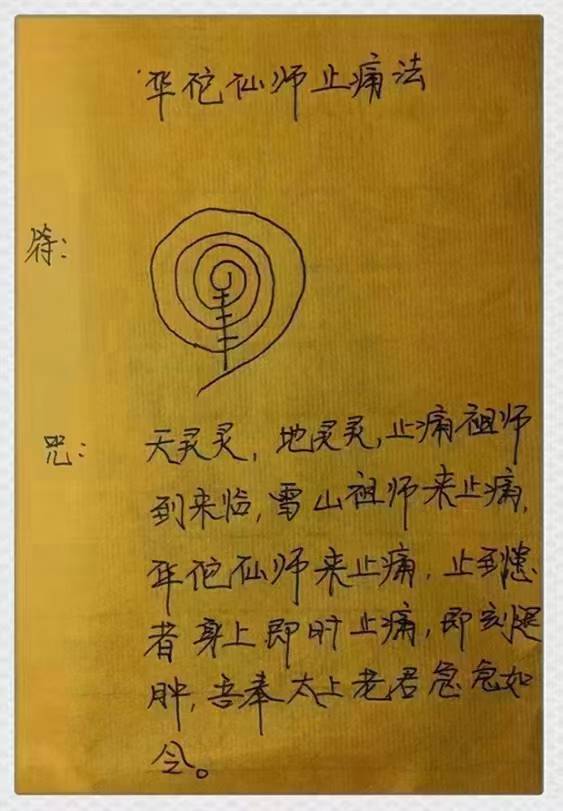 华佗仙师止痛法
符：
咒：
天灵灵，地灵灵，止痛祖师
到来临，雪山祖师来止痛，
华佗仙师来止痛，止到患
者身上即时止痛，即刻退
肿，吾奉太上老君急急如
令。